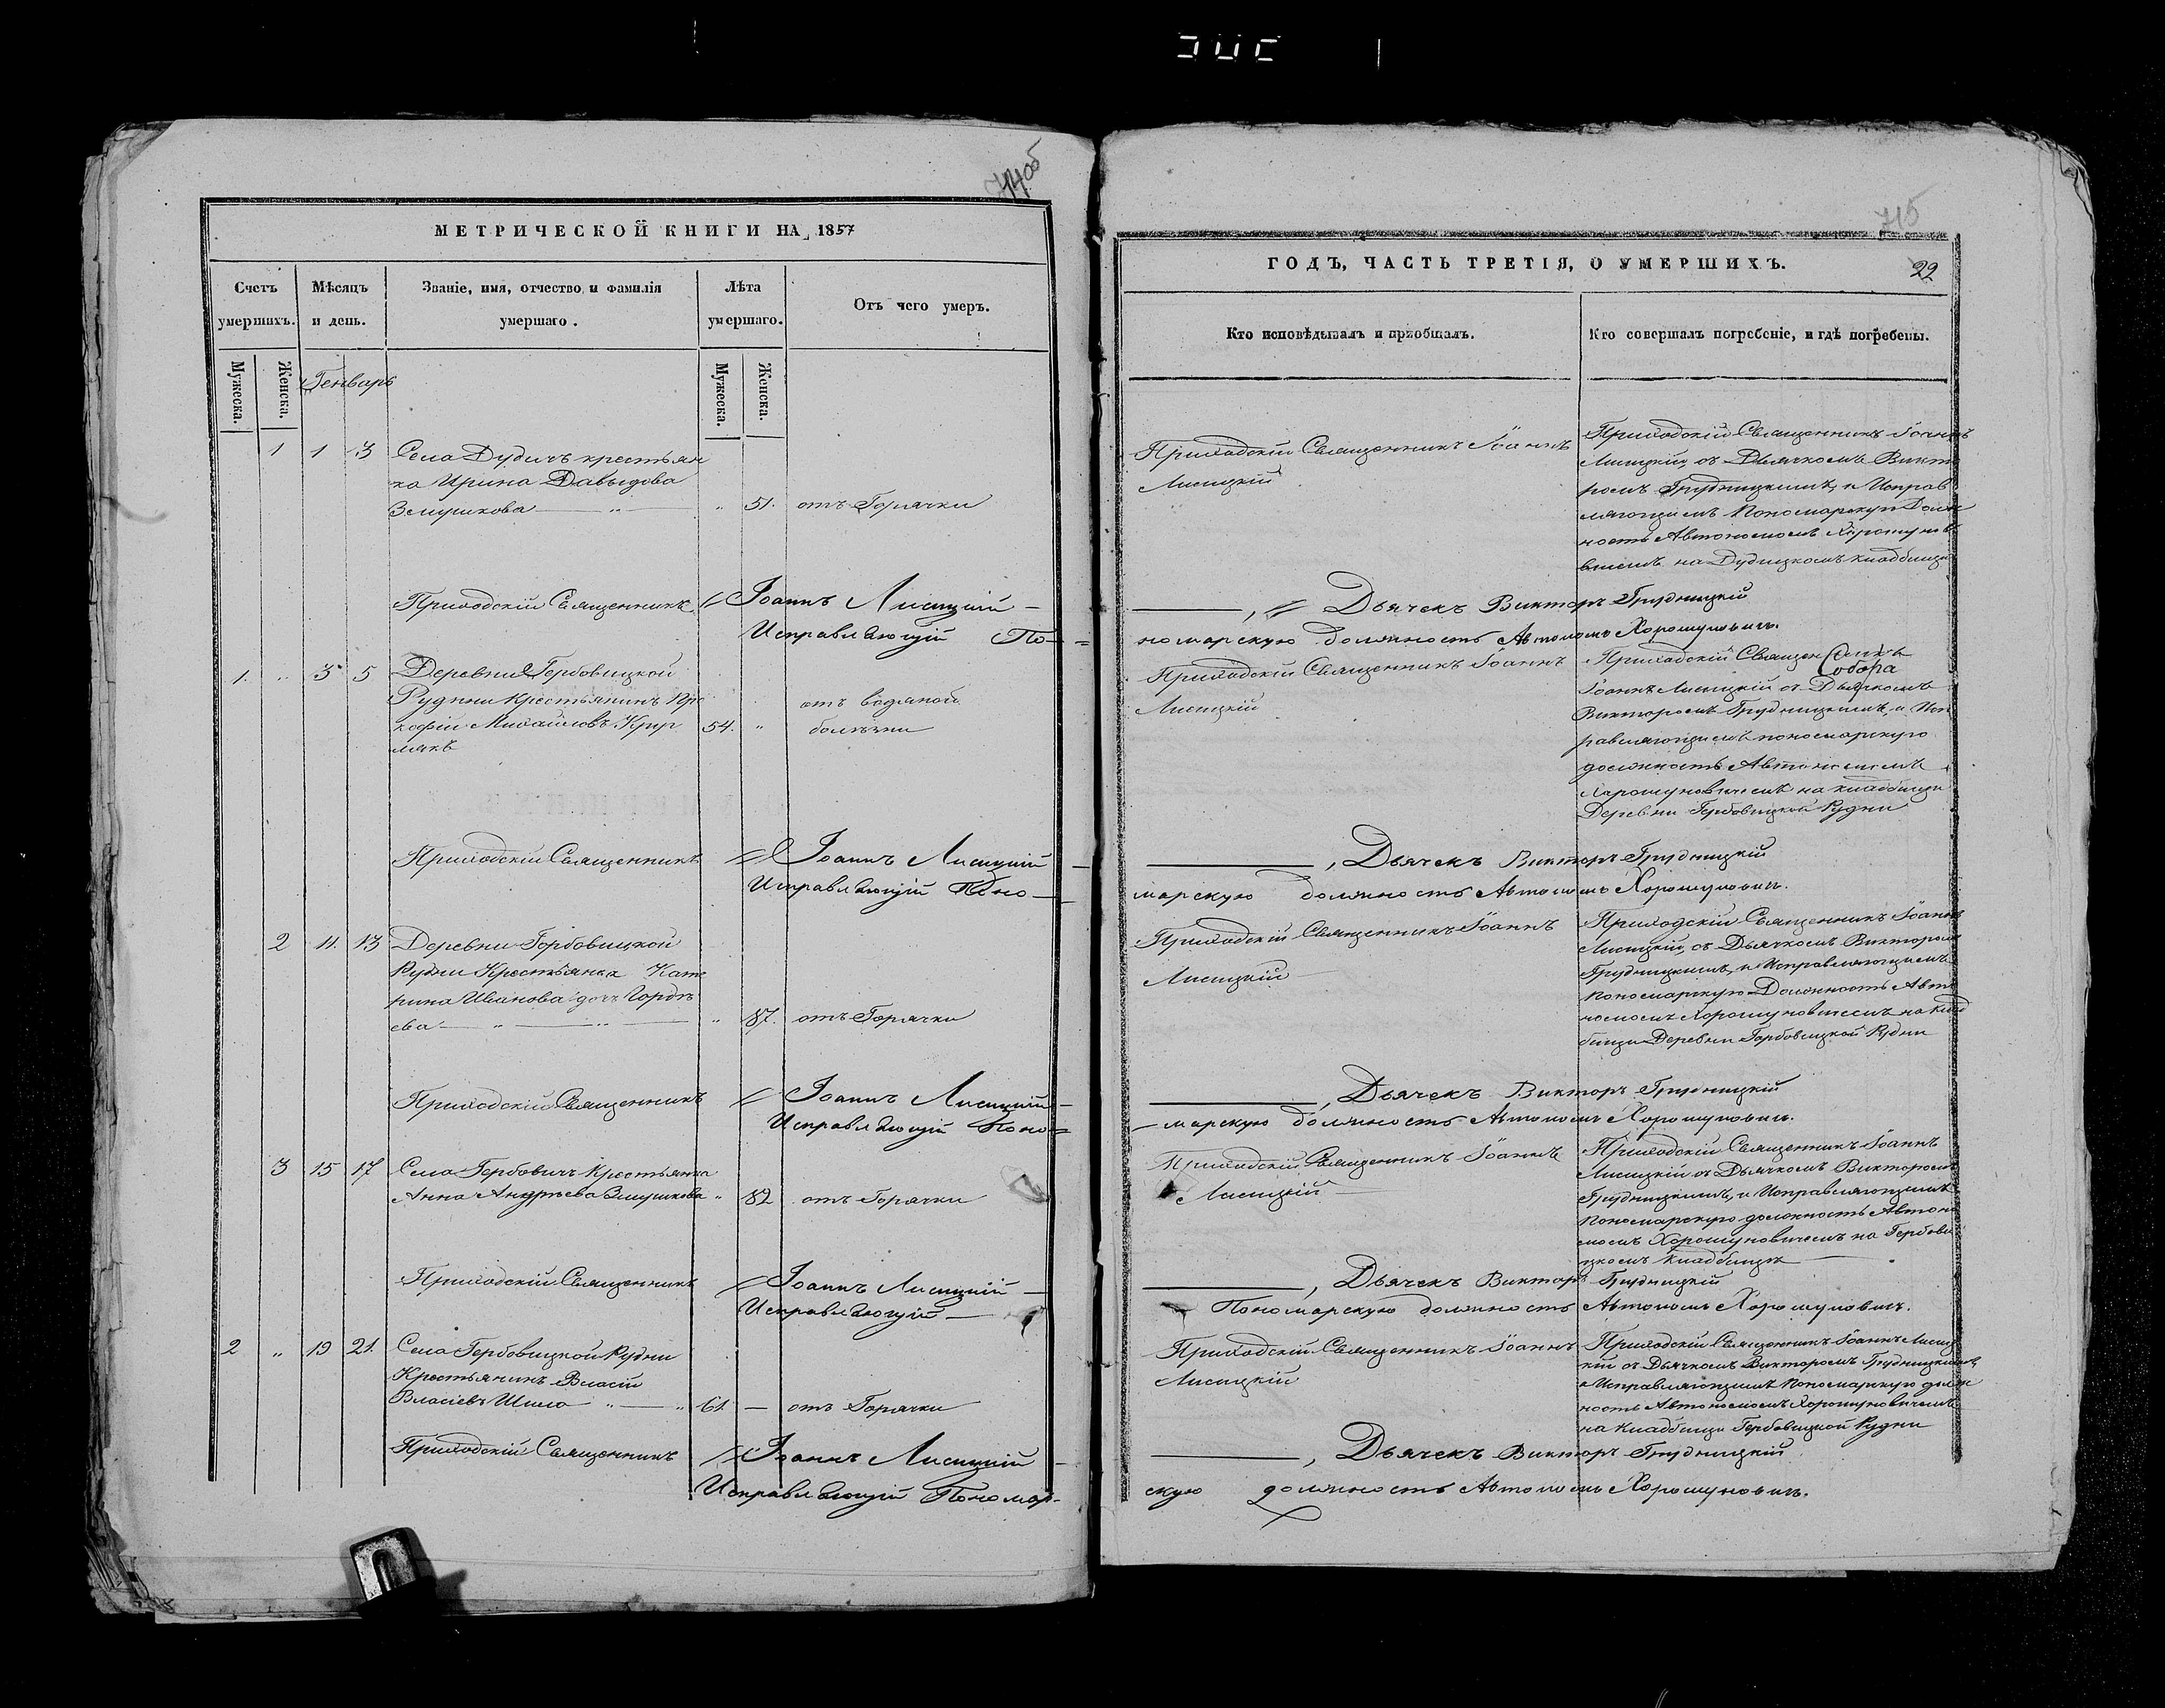 714об
МЕТРИЧЕСКОЙ КНИГИ НА 1857
Счетъ умершихъ.
Мѣсяцъ и день.
Званіе, имя, отчество и фамилія умершаго.
Лѣта умершаго.
Отъ чего умеръ.
Мужеска.
Женска.
Генварь
Мужеска.
Женска.
1 1 3 Села Дудичъ крестьян
ка Ирина Давыдова
Земушкова — „ — „ 51. отъ Горячки
Приходскій Священникъ Іоаннъ Лисицкій —
Исправляющій По-
1. „ 3 5 Деревни Гербовицкой
Рудни Крестьянинъ Про
кофій Михайловъ Круг
лякъ 54. „ отъ водяной
болѣзни
Приходскій Священникъ Іоаннъ Лисицкій —
Исправляющій Поно-
2 11. 13 Деревни Гербовицкой
Рудни Крестьянка Кате
рина Иванова дочь Гордѣ
ева — „ — „ — „ 87. отъ Горячки
Приходскій Священникъ Іоаннъ Лисицкій —
Исправляющій Поно-
3 15 17 Села Гербовичъ Крестьянка
Анна Андреева Змушкова „ 82 отъ Горячки
Приходскій Священникъ Іоаннъ Лисицкій —
Исправляющій —
2 „ 19 21. Села Гербовицкой Рудни
Крестьянинъ Власій
Власіевъ Шило „ — „ 61. — отъ Горячки
Приходскій Священникъ Іоаннъ Лисицкій —
Исправляющій Пономар-
715
ГОДЪ, ЧАСТЬ ТРЕТІЯ, О УМЕРШИХЪ.
22
Кто исповѣдывалъ и пріобщалъ.
Кто совершалъ погребеніе, и гдѣ погребены.
Приходскій Священникъ Іоаннъ
Лисицкій
Приходскій Священникъ Іоаннъ
Лисицкій, съ Дьячкомъ Викто
ромъ Грудницкимъ, и Исправ
ляющимъ Пономарскую Долж
ность Автономомъ Хорошунов
на Дудицкомъ кладбищи
—, Дьячекъ Викторъ Грудницкій
номарскую должность Автономъ Хорошуновичъ.
Приходскій Священникъ Іоаннъ
Лисицкій
Приходскій Священникъ
Собора
Іоаннъ Лисицкій съ Дьячкомъ
Викторомъ Грудницкимъ, и Исп
равляющимъ пономарскую
должность Автономомъ
Харошуновичемъ на кладбищи
Деревни Гербовицкой Рудни
—, Дьячекъ Викторъ Грудницкій
марскую должность Автономъ Хорошуновичъ.
Приходскій Священникъ Іоаннъ
Лисицкій
Приходскій Священникъ Іоаннъ
Лисицкій, съ Дьячкомъ Викторомъ
Грудницкимъ, и Исправляющимъ
Пономарскую Должность Авто
номомъ Хорошуновичемъ на клад
бищи Деревни Гербовицкой Рудни
—, Дьячекъ Викторъ Грудницкій
— марскую должность Автономъ Хорошуновичъ.
Приходскій Священникъ Іоаннъ
Лисицкій —
Приходскій Священникъ Іоаннъ
Лисицкій съ Дьячкомъ Викторомъ
Грудницкимъ, и Исправляющимъ
Пономарскую должность Автоно
момъ Хорошуновичемъ на Гербови
цкомъ кладбищѣ —
—, Дьячекъ Викторъ Грудницкій
Пономарскую должность Автономъ Хорошуновичъ.
Приходскій Священникъ Іоаннъ
Лисицкій
Приходскій Священникъ Іоаннъ Лисиц
кій съ Дьячкомъ Викторомъ Грудницкимъ,
и Исправляющимъ Пономарскую долж
ность Автономомъ Хорошуновичемъ
на Кладбищи Гербовицкой Рудни
—, Дьячекъ Викторъ Грудницкій
скую должность Автономъ Хорошуновичъ.